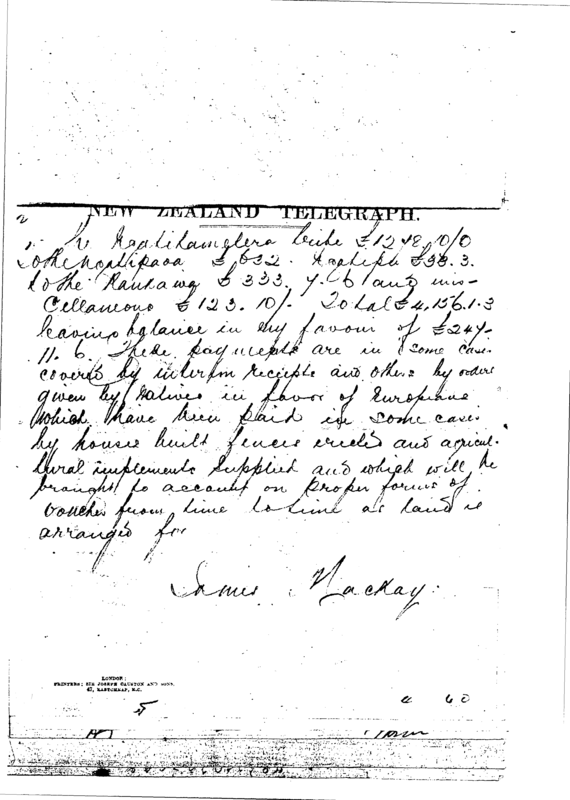 2
NEW ZEALAND TELEGRAPH.
Ngatitamatera tribe £1248.10/0
to the Ngatipaoa £632. Ngatipu £33.3.
to the Raukawa £333. 7. 6 and mis-
cellaneous £123.10/. Total £4,156.1.3
leaving balance in my favour of £247.
11.6. These payments are in some cases
covered by interim receipts and others by orders
given by natives in favor of Europeans
which have been paid in some cases
by houses built fences erected and agricul-
tural implements supplied and which will be
brought to account on proper forms of
voucher from time to time as land is
arranged for
James Mackay.
LONDON:
PRINTERS: SIR JOSEPH CAUSTON AND SONS,
47, EASTCHEAP, E.C.
5
60